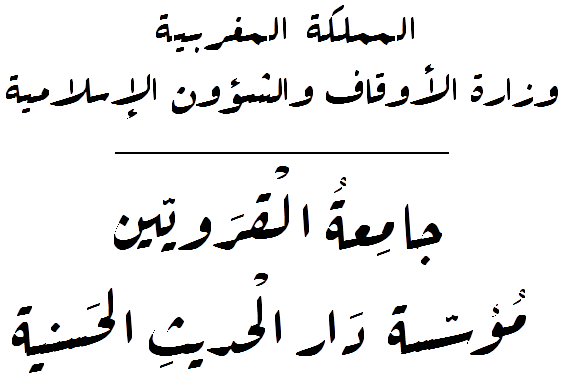 المملكة المغربية
وزارة الأوقاف والشؤون الإسلامية
جامِعةُ الْقرَويّين
مُؤسّسة دَار الْحديثِ الحَسنية